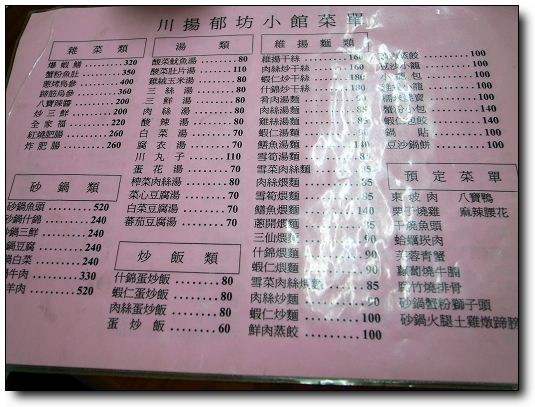 川揚郁坊小館菜單
雜菜類
爆蝦鱔 320
蟹粉魚肚 350
蔥烤烏參 400
蹄筋烏參 360
八寶辣醬 200
炒三鮮 200
全家福 220
紅燒肥腸 260
炸肥腸 260
砂鍋類
砂鍋魚頭 520
砂鍋什錦 240
鍋三鮮 240
鍋豆腐 240
鍋白菜 240
鍋牛肉 330
羊肉 520
湯類
酸菜魷魚湯 80
酸菜肚片湯 110
雞絨玉米湯 80
三絲湯 80
三鮮湯 80
肉絲湯 80
酸辣湯 70
白菜湯 70
腐衣湯 70
川丸子 110
蛋花湯 70
榨菜肉絲湯 80
菜心豆腐湯 70
白菜豆腐湯 70
蕃茄豆腐湯 70
炒飯類
什錦蛋炒飯 80
蝦仁蛋炒飯 80
肉絲蛋炒飯 80
蛋炒飯 60
維揚麵類
維揚干絲 160
肉絲干絲 160
蝦仁干絲 180
什錦干絲 180
肴肉湯麵 90
肉絲湯麵 85
雞絲湯麵 85
蝦仁湯麵 90
鱔魚湯麵 140
雪筍湯麵 85
雪菜肉絲麵 85
肉絲煨麵 85
雪筍煨麵 85
鱔魚煨麵 140
蔥開煨麵 90
三仙煨麵 90
什錦煨麵 90
蝦仁煨麵 90
雪菜肉絲煨麵 85
肉絲炒麵 90
蝦仁炒麵 100
鮮肉蒸餃 100
蒸餃 100
小籠包 100
小籠 100
燒賣 100
蟹粉小包 140
蝦仁包餃 140
鍋貼 100
豆沙鍋餅 100
預定菜單
東坡肉 八寶鴨
栗子燒雞 麻辣腰花
干燒魚頭
蛤蠣崁肉
芙蓉青蟹
蘿蔔燒牛腩
腐竹燒排骨
砂鍋蟹粉獅子頭
砂鍋火腿土雞燉蹄膀